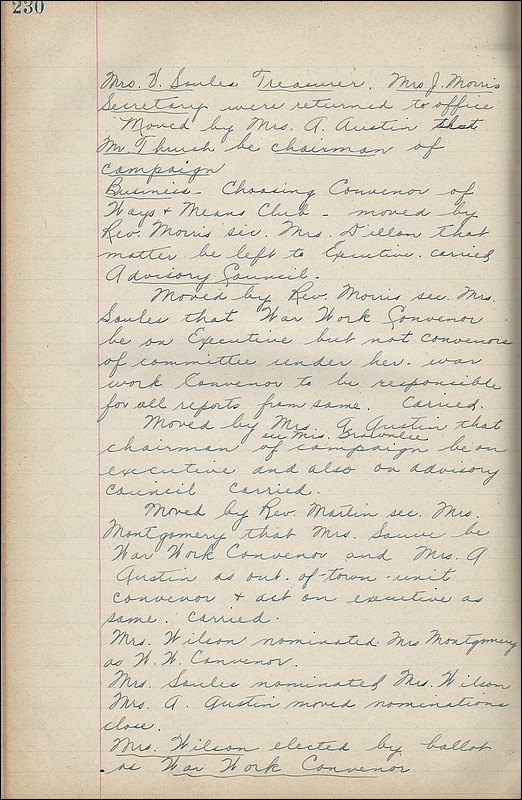 230
Mrs. V. Soules Treasurer. Mrs J. Morris
Secretary were returned to office
Moved by Mrs. A. Austin that
Mr. Thrush be chairman of
campaign
Business - Choosing Convenor of
Ways & Means Club - moved by
Rev. Morris sec. Mrs. Dillon that
matter be left to Executive. carried
Advisory Council.
Moved by Rev. Morris sec. Mrs.
Soules that War Work Convenor
be on Executive but not convenors
of committee under her. war
work Convenor to be responsible
for all reports from same. Carried.
Moved by Mrs. A Austin that
sec Mrs. Brownlee
chairman of campaign be on
executive and also on advisory
council carried.
Moved by Rev. Martin sec. Mrs.
Montgomery that Mrs. Sauve be
War Work Convenor and Mrs. A
Austin as out-of-town-unit
convenor & act on executive as
same. Carried.
Mrs. Wilson nominated Mrs Montgomery
as W. W. Convenor.
Mrs. Soules nominated Mrs. Wilson
Mrs. A. Austin moved nominations
close.
Mrs. Wilson elected by ballot
as War Work Convenor